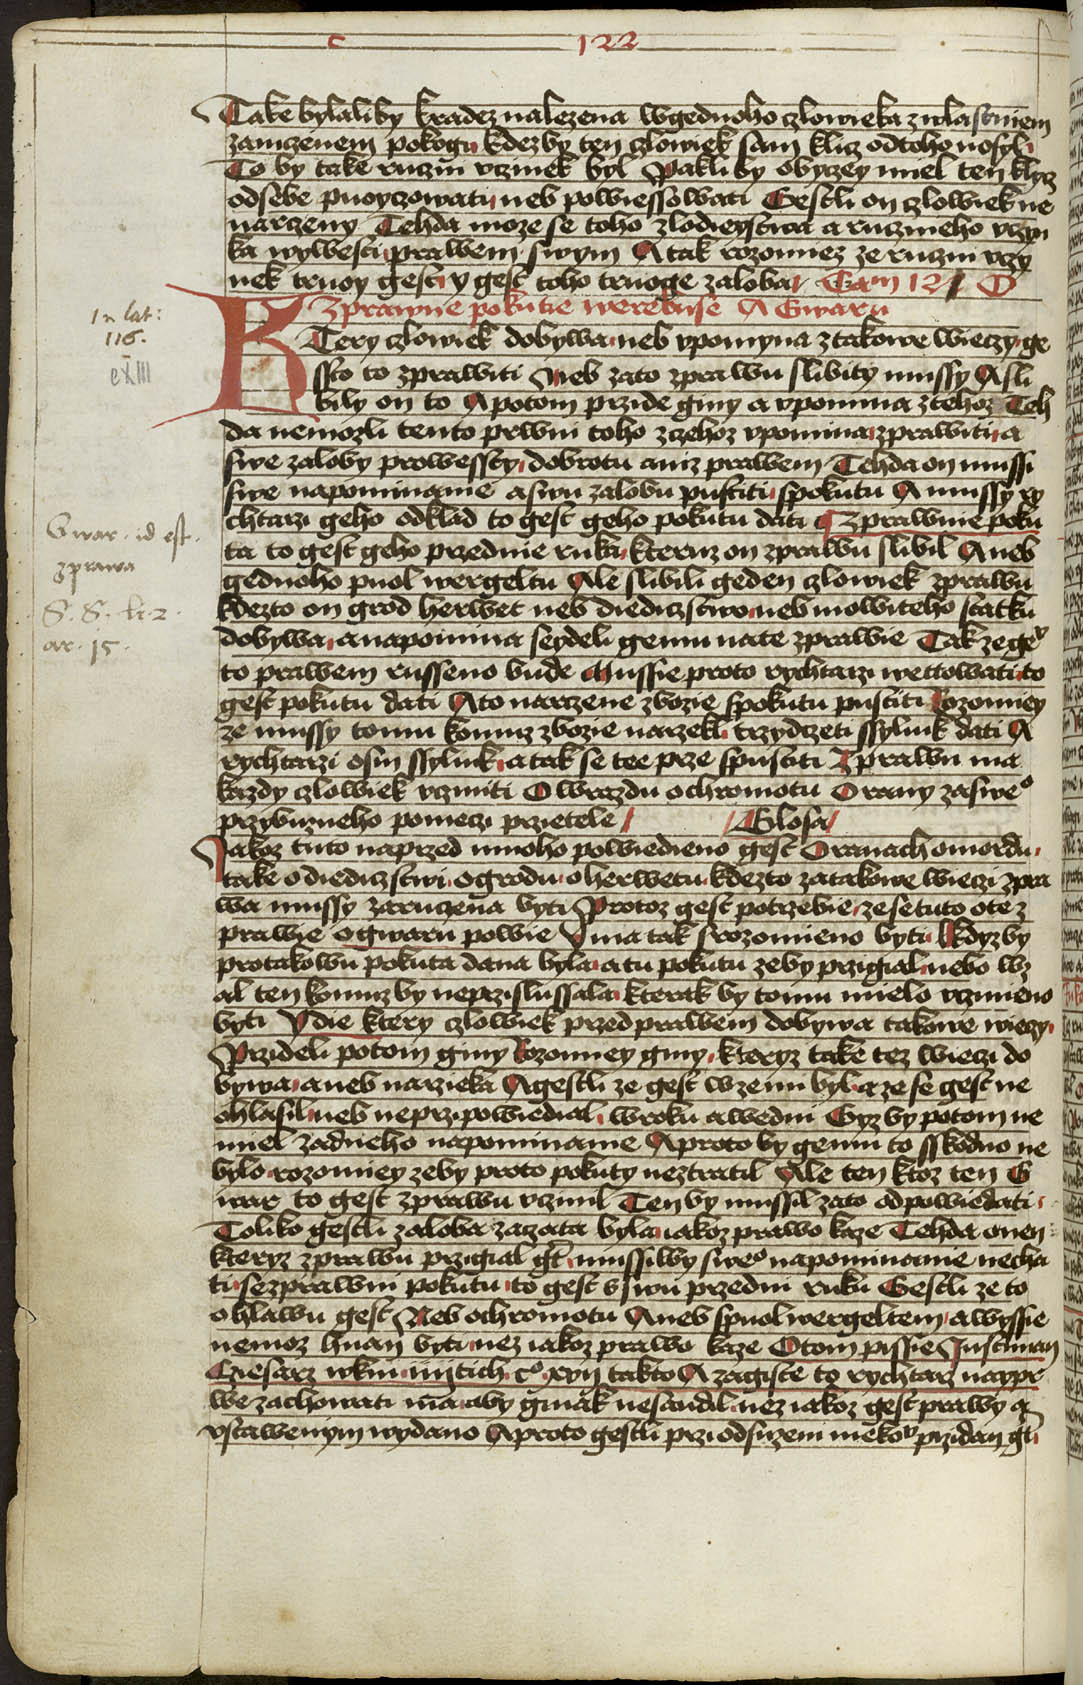 c 122
Take bylaliby kradez nalezena wgednoho czlowieka zwlasstniem
zamczenem pokogi kdezby ten czlowiek sam klicz odtoho nosyl
To by take ruczni vczinek byl Pakliby obyczey miel ten klycz
odsebe puoyczowati neb powiessowati Gestli on czlowiek ne
narczeny Tehda moze se toho zlodieystwa a ruczneho vczin
ka wywesti prawem swym A tak rozomiez ze ruczni vczy
nek truoy gest y gest toho truoge zaloba Cam 121 O
Zprawnie pokutie werebuse A Gwaru
In lat:
116.
cxiii
KTery czlowiek dobywa neb vpomyna ztakowe wieczy ge
ssto to zprawiti Neb zato zprawu slibity mussy A sli
bily on to A potom przide giny a vpomina ztehoz Teh
da nemozli tento prwni toho zczehoz vpomina zprawiti a
swe zaloby prowessty dobrotu aniz prawem Tehda on mussi
swe napominanie a swu zalobu pustiti spokutu A mussy ry
chtarzi geho odklad to gest geho pokutu dati Zprawnie poku
ta to gest geho przednie ruka kteruz on zprawu slibil Aneb
gednoho puol wergeltu Ale slibili geden czlowiek zprawu
kdezto on grod herwet neb diediczstwo neb mowiteho statku
dobywa a napomina seydeli gemu nate zprawie Tak ze geo
to prawem russeno bude Mussie proto rychtarzi wettowati to
gest pokutu dati A to narczene zbozie spokutu pustiti Rozomiey
ze mussy tomu komuz zbozie narzekl trzydczeti ssylink dati A
rychtarzi osm ssylink a tak se tee prze spustiti Zprawu ma
kazdy czlowiek vcziniti O wrazdu o chromotu O rany za sweo
przybuzneho pomezi przietele Glosa
Gwar id est
zprawa
S. S. li. 2.
ar. 15.
Jakoz tuto naprzed mnoho powiedieno gest O ranach o mordu
take o diediczstwi o grodu o herwetu kdezto zatakowe wieczi zpra
wa mussy zaruczena byti Protoz gest potrzebie ze se tuto o tez
prawie o gwaru powie Y ma tak srozomieno byti Kdyzby
protakowu pokuta dana byla a tu pokutu zeby przigial nebo wz
al ten komuzby neprzislussala kterak by tomu mielo vczineno
byti Y die ktery czlowiek przed prawem dobywa takowe wieczy
Przideli potom giny Rozomiey giny kteryz take tez wieczi do
bywa aneb narzieka A gestli ze gest wzemi byl a ze se gest ne
ohlasil neb neprzipowiedial wroku a wedni Gyz by potom ne
miel zadneho napominanie A proto by gemu to sskodno ne
bylo rozomiey zeby proto pokuty neztratil Ale ten ktoz ten G
war to gest zprawu vczinil Ten by mussil zato odpowiedati
Toliko gestli zaloba zaczata byla iakoz prawo kaze Tehda onen
kteryz zprawu przigial gt mussilby sweo napominanie necha
ti sezprawni pokutu to gest s swu przedni ruku Gestli ze to
o hlawu gest Neb o chromotu Aneb spuol wergeltem a wyssie
nemoz hnan byti nez iakoz prawo kaze O tom pissie Justinian
Cziesarz wkni iiii tich co xvii takto A zagiste to rychtarz naypr
we zachowati ma aby ginak nesaudil nez iakoz gest prawy a
vstawenym wydano A proto gestli przi odsuzeni niekoo przidan gti